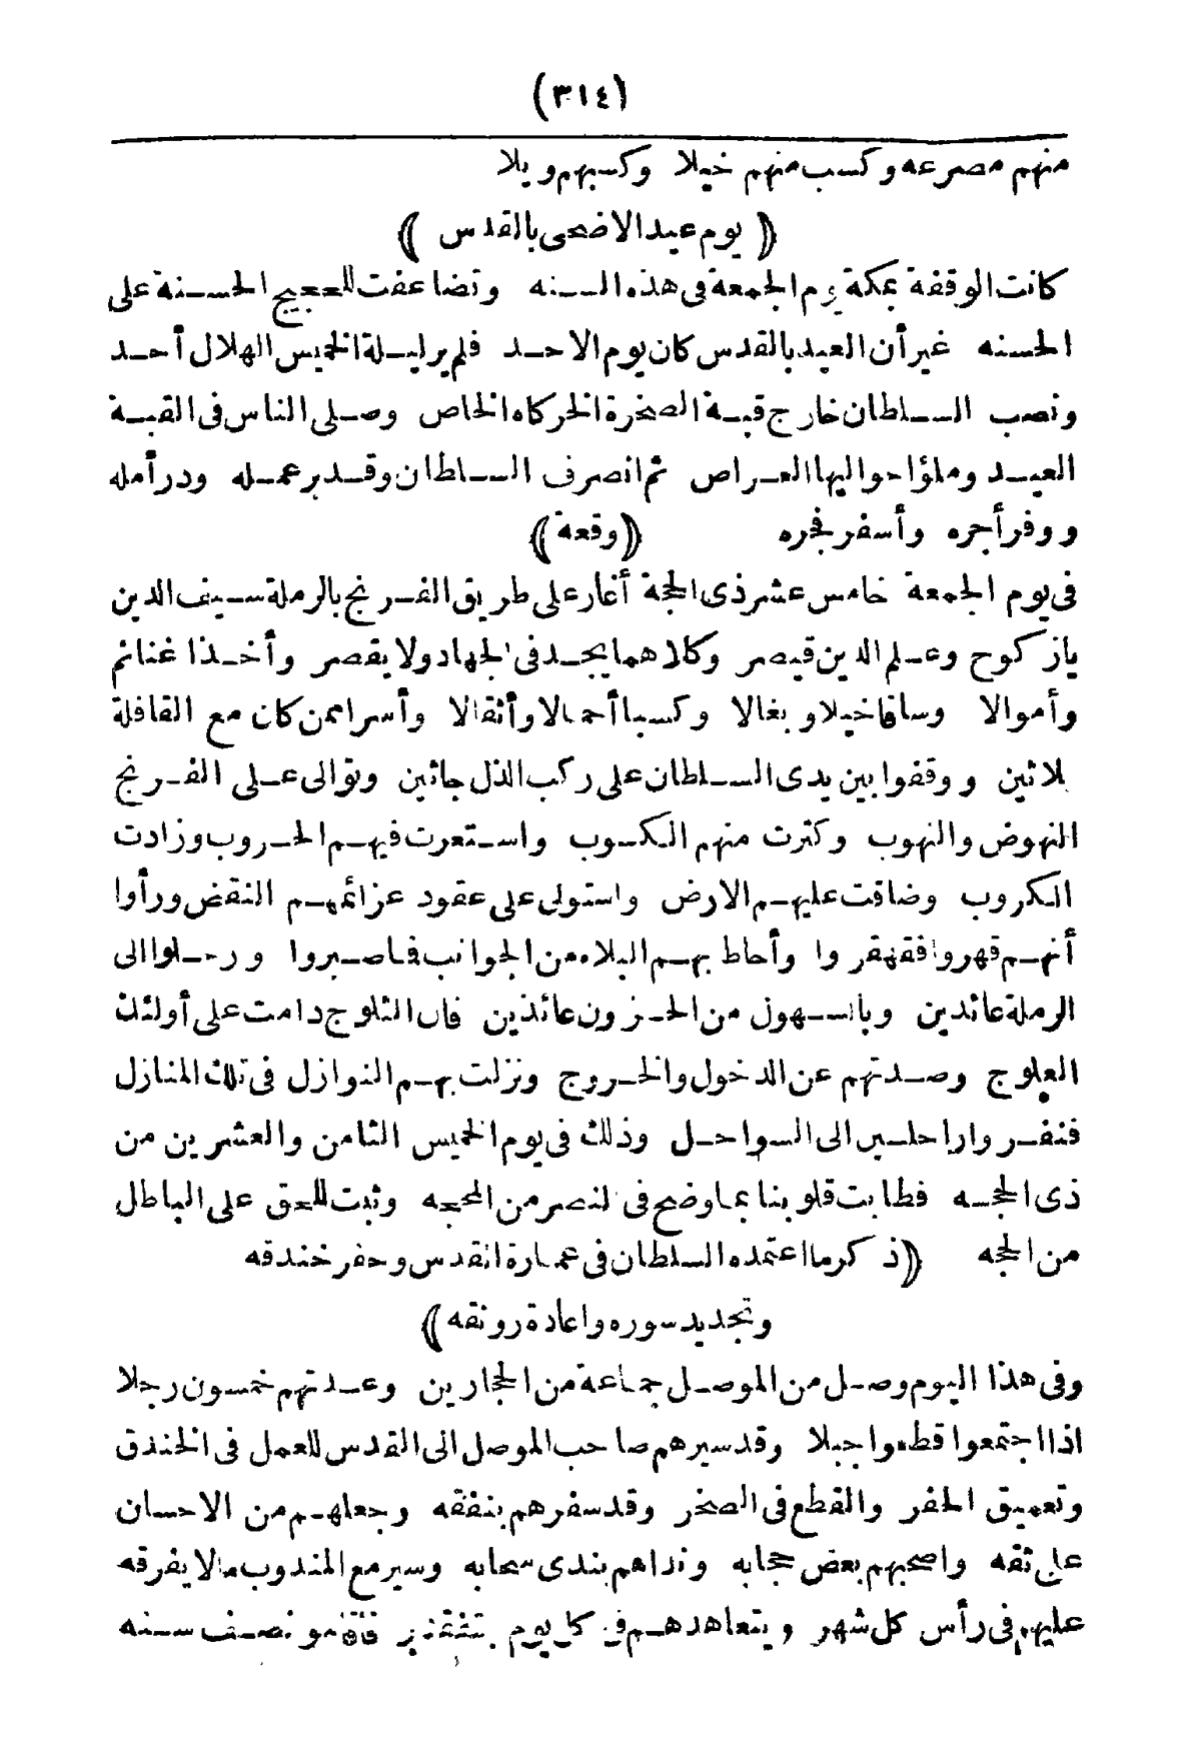 (٣١٤)
منهم مصرعه وكسب منهم خيلا وكسبهم ويلا
(يوم عيد الاضحى بالقدس)
كانت الوقفة بمكة يوم الجمعة فى هذه السنه وتضاعفت للحجيج الحسنة على
الحسنه غير أن العيد بالقدس كان يوم الاحد فلم ير ليلة الخميس الهلال أحد
ونصب السلطان خارج قبة الصخرة الخركاه الخاص وصلى الناس فى القبة
العيد وملؤا حواليها العراص ثم انصرف السلطان وقد بر عمله ودر أمله
ووفر أجره وأسفر فجره (وقعة)
فى يوم الجمعة خامس عشر ذى الحجة أغار على طريق الفرنج بالرملة سيف الدين
يازكوح وعلم الدين قيصر وكلاهما يجد فى الجهاد ولا يقصر وأخذا غنائم
وأموالا وساقا خيلا وبغالا وكسبا أحمالا وأثقالا وأسرا ممن كان مع القافلة
ثلاثين ووقفوا بين يدى السلطان على ركب الذل جاثين وتوالى على الفرنج
النهوض والنهوب وكثرت منهم الكسوب واستعرت فيهم الحروب وزادت
الكروب وضاقت عليهم الارض واستولى على عقود عزائمهم النقض ورأوا
أنهم قهروا فقهقروا وأحاط بهم البلاء من الجوانب فما صبروا ورحلوا الى
الرملة عائدين وبالسهول من الحزون عائذين فان الثلوج دامت على أولئك
العلوج وصدتهم عن الدخول والخروج ونزلت بهم النوازل فى تلك المنازل
فنفروا راحلين الى السواحل وذلك فى يوم الخميس الثامن والعشرين من
ذى الحجه فطابت قلوبنا بما وضح فى النصر من المحجه وثبت للحق على الباطل
من الحجه (ذكر ما اعتمده السلطان فى عمارة القدس وحفر خندقه
وتجديد سوره واعادة رونقه)
وفى هذا اليوم وصل من الموصل جماعة من الحجارين وعدتهم خمسون رجلا
اذا اجتمعوا قطعوا جبلا وقد سيرهم صاحب الموصل الى القدس للعمل فى الخندق
وتعميق الحفر والقطع فى الصخر وقد سفرهم بنفقه وجعلهم من الاحسان
على ثقه واصحبهم بعض حجابه ونداهم بندى سحابه وسير مع المندوب مالا يفرقه
عليهم فى رأس كل شهر ويتعاهدهم فى كل يوم فأقاموا نصف سنه